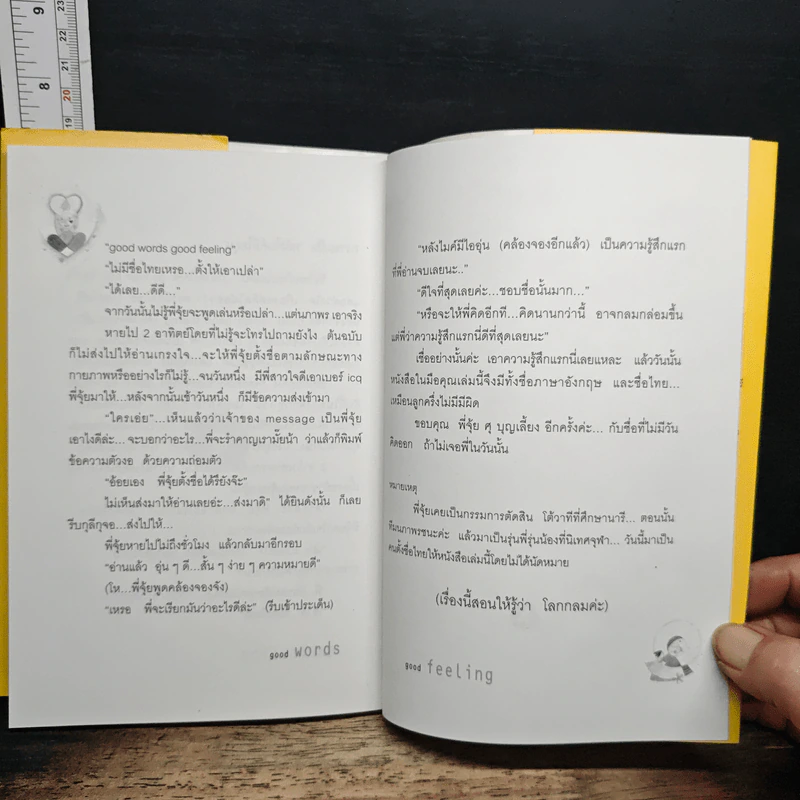 9
8
23
22
21
20
19
"good words good feeling"
"ไม่มีชื่อไทยเหรอ...ตั้งให้เอาเปล่า"
"ได้เลย...ดีดี..."
จากวันนั้นไม่รู้พี่จุ้ยจะพูดเล่นหรือเปล่า...แต่นภาพร เอาจริง
หายไป 2 อาทิตย์โดยที่ไม่รู้จะโทรไปถามยังไง ต้นฉบับ
ก็ไม่ส่งไปให้อ่านเกรงใจ...จะให้พี่จุ้ยตั้งชื่อตามลักษณะทาง
กายภาพหรืออย่างไรก็ไม่รู้...จนวันหนึ่ง มีพี่สาวใจดีเอาเบอร์ icq
พี่จุ้ยมาให้...หลังจากนั้นเช้าวันหนึ่ง ก็มีข้อความส่งเข้ามา
"ใครเอ่ย"...เห็นแล้วว่าเจ้าของ message เป็นพี่จุ้ย
เอาไงดีล่ะ...จะบอกว่าอะไร...พี่จะรำคาญเรามั้ยน้า ว่าแล้วก็พิมพ์
ข้อความตัวงอ ด้วยความถ่อมตัว
"อ้อยเอง พี่จุ้ยตั้งชื่อได้รึยังจ๊ะ"
ไม่เห็นส่งมาให้อ่านเลยอ่ะ...ส่งมาดิ" ได้ยินดังนั้น ก็เลย
รีบกุลีกุจอ...ส่งไปให้...
พี่จุ้ยหายไปไม่ถึงชั่วโมง แล้วกลับมาอีกรอบ
"อ่านแล้ว อุ่น ๆ ดี...สั้น ๆ ง่าย ๆ ความหมายดี"
(โห...พี่จุ้ยพูดคล้องจองจัง)
"เหรอ พี่จะเรียกมันว่าอะไรดีล่ะ" (รีบเข้าประเด็น)
good words
"หลังไมค์มีไออุ่น (คล้องจองอีกแล้ว) เป็นความรู้สึกแรก
ที่พี่อ่านจบเลยนะ.."
"ดีใจที่สุดเลยค่ะ...ชอบชื่อนั้นมาก..."
"หรือจะให้พี่คิดอีกที...คิดนานกว่านี้ อาจกลมกล่อมขึ้น
แต่พี่ว่าความรู้สึกแรกนี่ดีที่สุดเลยนะ"
เชื่ออย่างนั้นค่ะ เอาความรู้สึกแรกนี่เลยแหละ แล้ววันนั้น
หนังสือในมือคุณเล่มนี้จึงมีทั้งชื่อภาษาอังกฤษ และชื่อไทย...
เหมือนลูกครึ่งไม่มีมีผิด
ขอบคุณ พี่จุ้ย ศุ บุญเลี้ยง อีกครั้งค่ะ... กับชื่อที่ไม่มีวัน
คิดออก ถ้าไม่เจอพี่ในวันนั้น
หมายเหตุ
พี่จุ้ยเคยเป็นกรรมการตัดสิน โต้วาทีที่ศึกษานารี... ตอนนั้น
ทีมนภาพรชนะค่ะ แล้วมาเป็นรุ่นพี่รุ่นน้องที่นิเทศจุฬา... วันนี้มาเป็น
คนตั้งชื่อไทยให้หนังสือเล่มนี้โดยไม่ได้นัดหมาย
(เรื่องนี้สอนให้รู้ว่า โลกกลมค่ะ)
good feeling